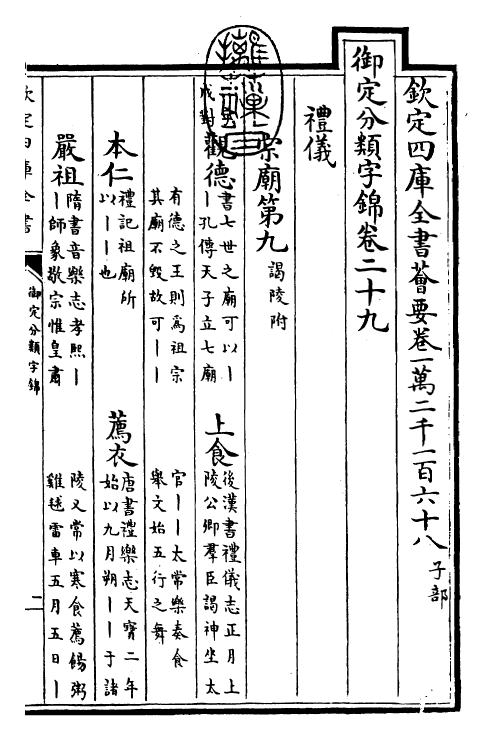 欽定四庫全書薈要卷一萬二千一百六十八 子部
御定分類字錦卷二十九
禮儀
宗廟第九 謁陵附
觀德 書七世之廟可以丨
丨孔傳天子立七廟
有德之王則爲祖宗
其廟不毀故可丨丨
上食 後漢書禮儀志正月上
陵公卿羣臣謁神坐太
官丨丨太常樂奏食
舉文始五行之舞
本仁 禮記祖廟所
以丨丨也
薦衣 唐書禮樂志天寶二年
始以九月朔丨丨于諸
陵又常以寒食薦餳粥
雞毬雷車五月五日丨
嚴祖 隋書音樂志孝熙丨
丨師象敬宗惟皇肅
欽定四庫全書
御定分類字錦
二